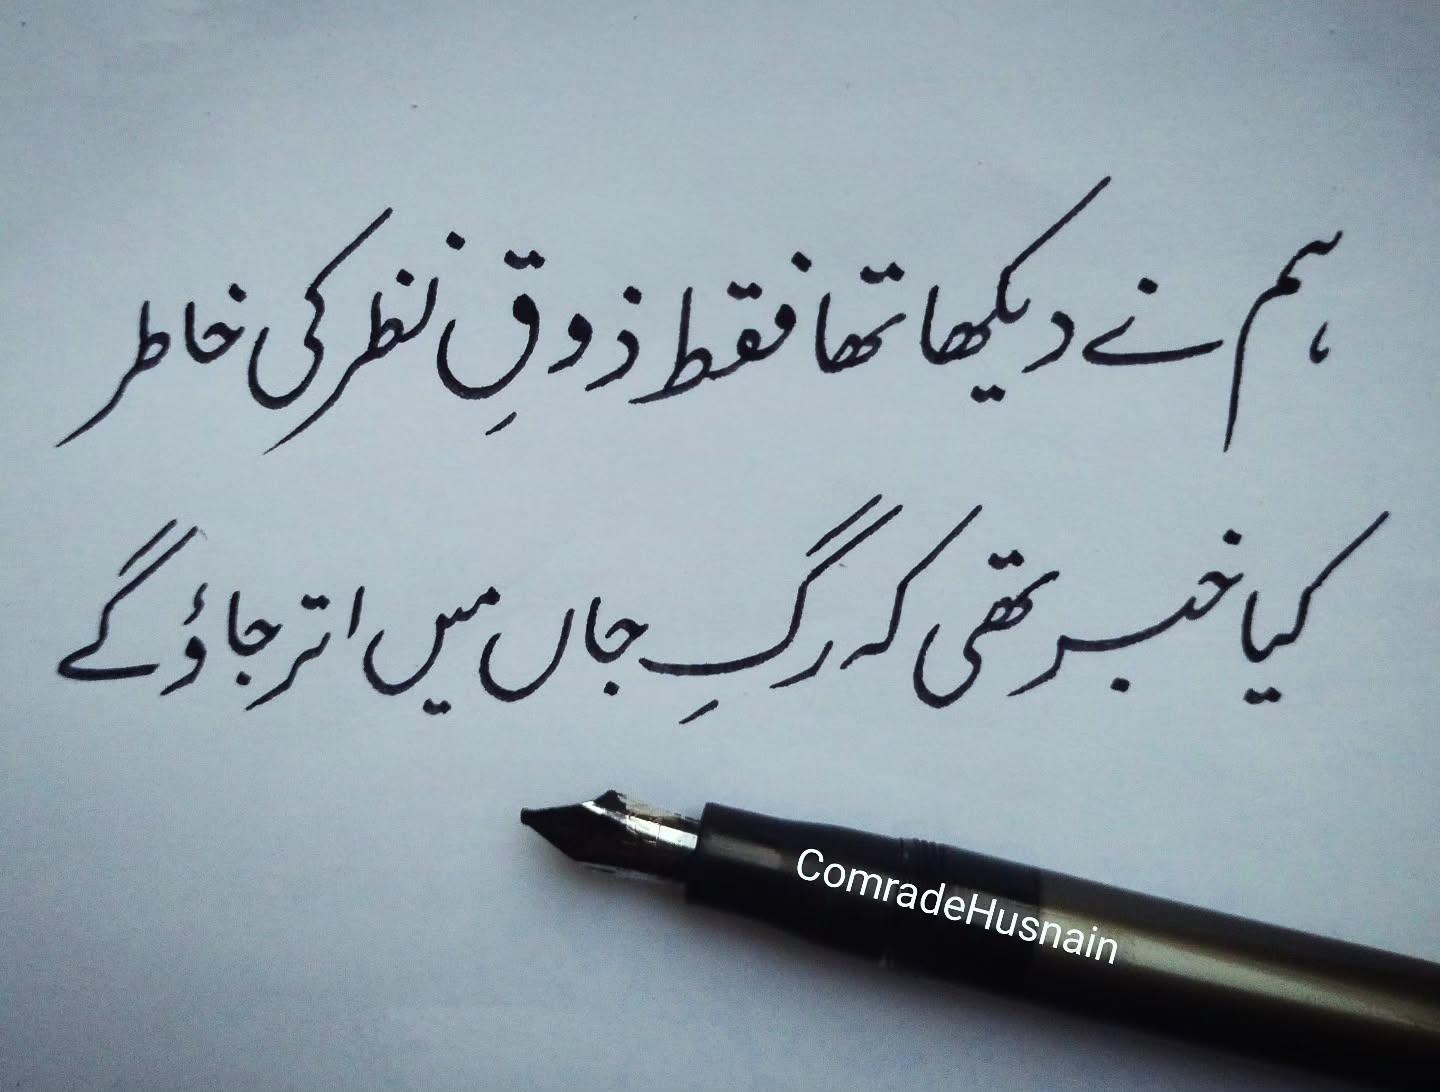 ہم نے دیکھا تھا فقط ذوقِ نظر کی خاطر
کیا خبر تھی کہ رگِ جاں میں اتر جاؤ گے
ComradeHusnain